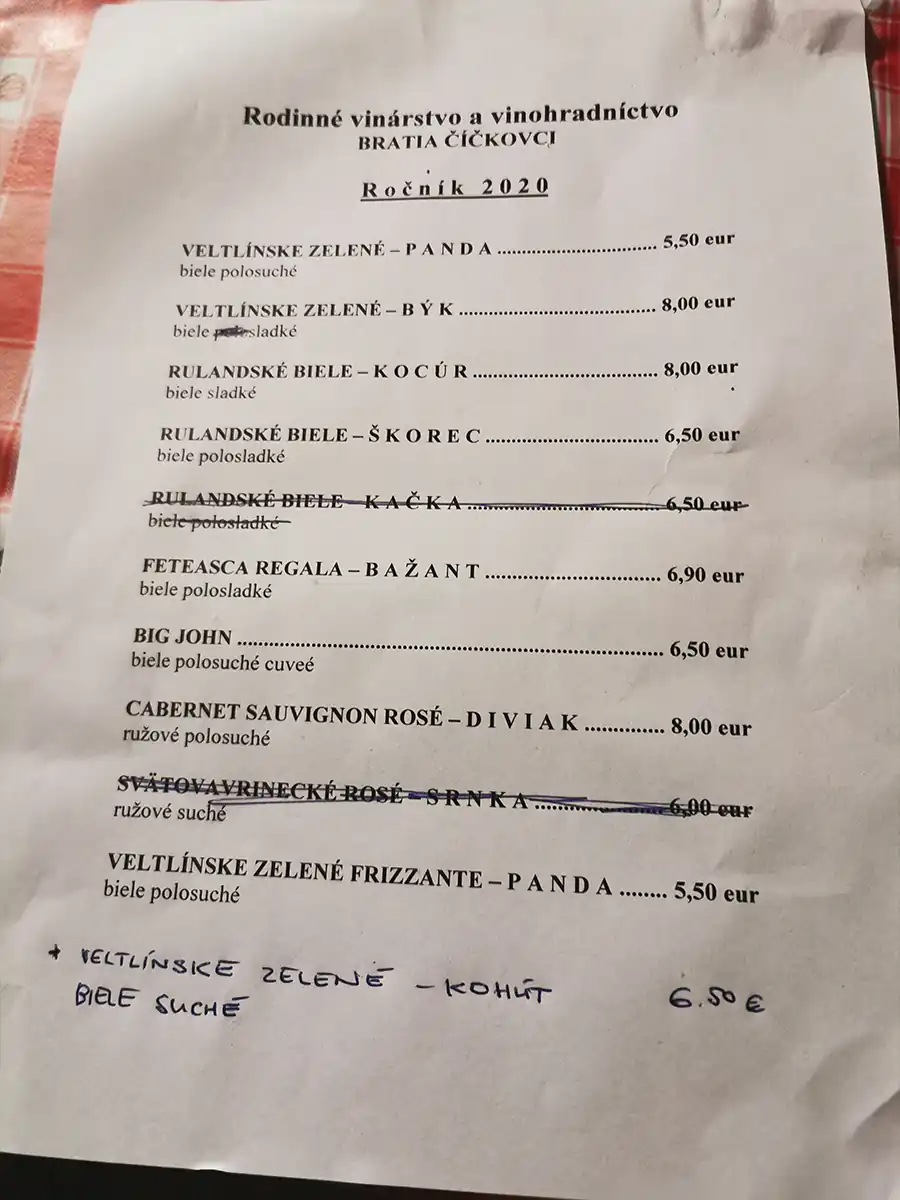 Rodinné vinárstvo a vinohradníctvo
BRATIA ČÍČKOVCI
Ročník 2020
VELTLÍNSKE ZELENÉ – P A N D A ................................ 5,50 eur
biele polosuché
VELTLÍNSKE ZELENÉ – B Ý K ....................................... 8,00 eur
biele polosladké
RULANDSKÉ BIELE – K O C Ú R ..................................... 8,00 eur
biele sladké
RULANDSKÉ BIELE – Š K O R E C ................................... 6,50 eur
biele polosladké
RULANDSKÉ BIELE – K A Č K A ...................................... 6,50 eur
biele polosladké
FETEASCA REGALA – B A Ž A N T ................................... 6,90 eur
biele polosladké
BIG JOHN ................................................................................. 6,50 eur
biele polosuché cuveé
CABERNET SAUVIGNON ROSÉ – D I V I A K .............. 8,00 eur
ružové polosuché
SVÄTOVAVRINECKÉ ROSÉ – S R N K A ........................ 6,00 eur
ružové suché
VELTLÍNSKE ZELENÉ FRIZZANTE – P A N D A ........ 5,50 eur
biele polosuché
+ VELTLÍNSKE ZELENÉ – KOHÚT 6.50 €
BIELE SUCHÉ